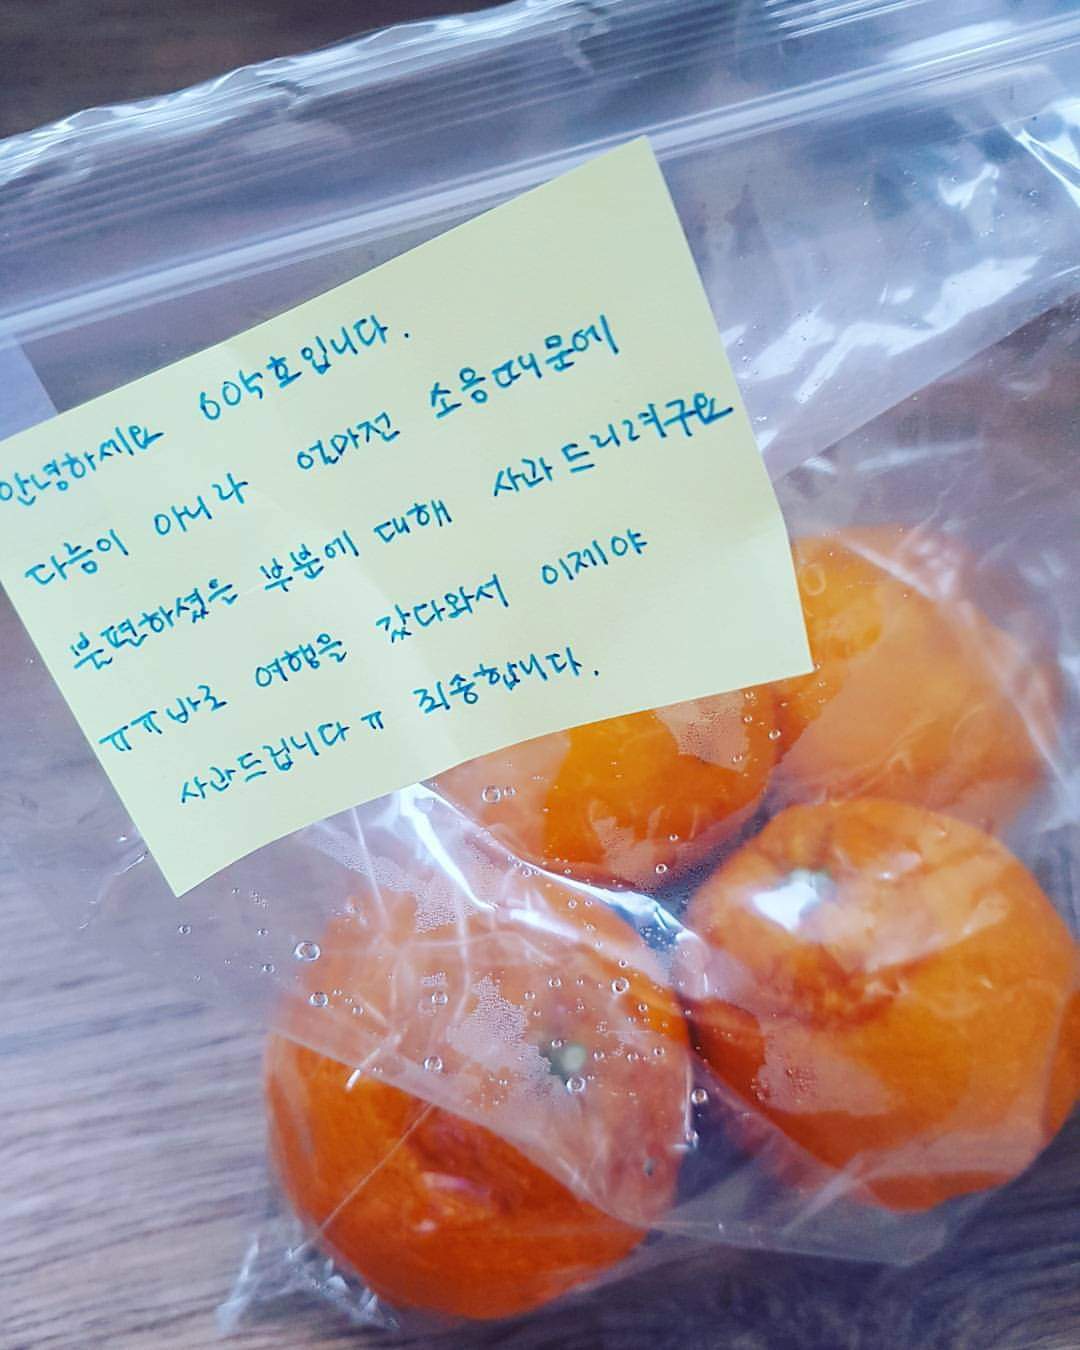 안녕하세요 605호입니다.
다름이 아니라 얼마전 소음때문에
불편하셨을 부분에 대해 사과드리려구요
ㅠㅠ 바로 여행을 갔다와서 이제야
사과드립니다ㅠ 죄송합니다.